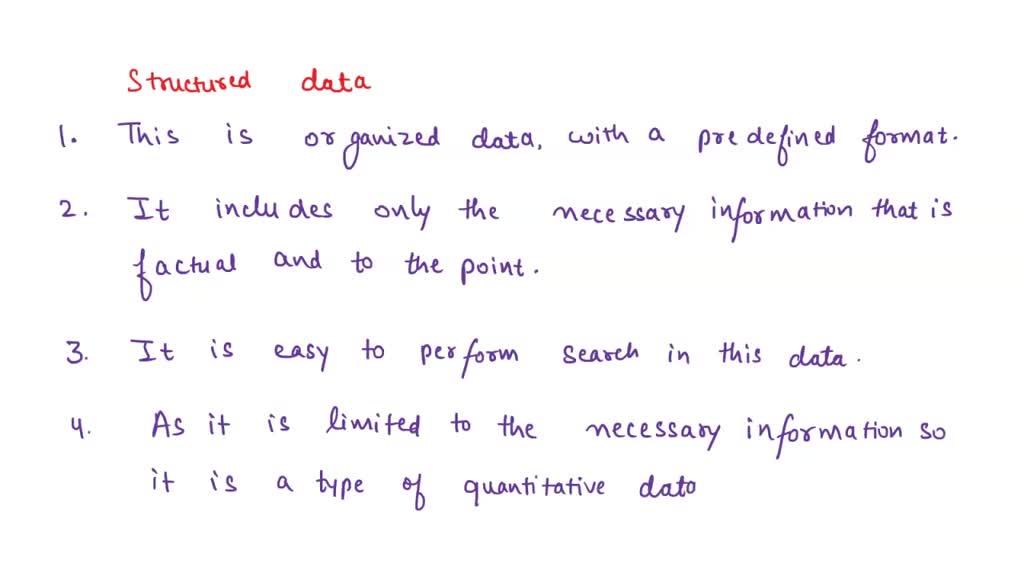 Structured data
1. This is organized data, with a predefined format.
2. It includes only the necessary information that is
factual and to the point.
3. It is easy to perform search in this data.
4. As it is limited to the necessary information so
it is a type of quantitative data